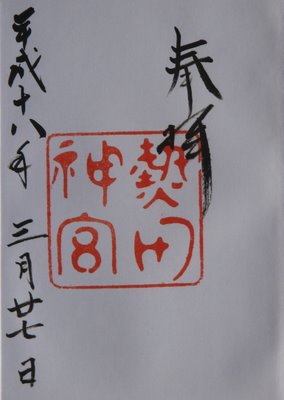 奉拝
熱田
神宮
平成十八年三月廿七日